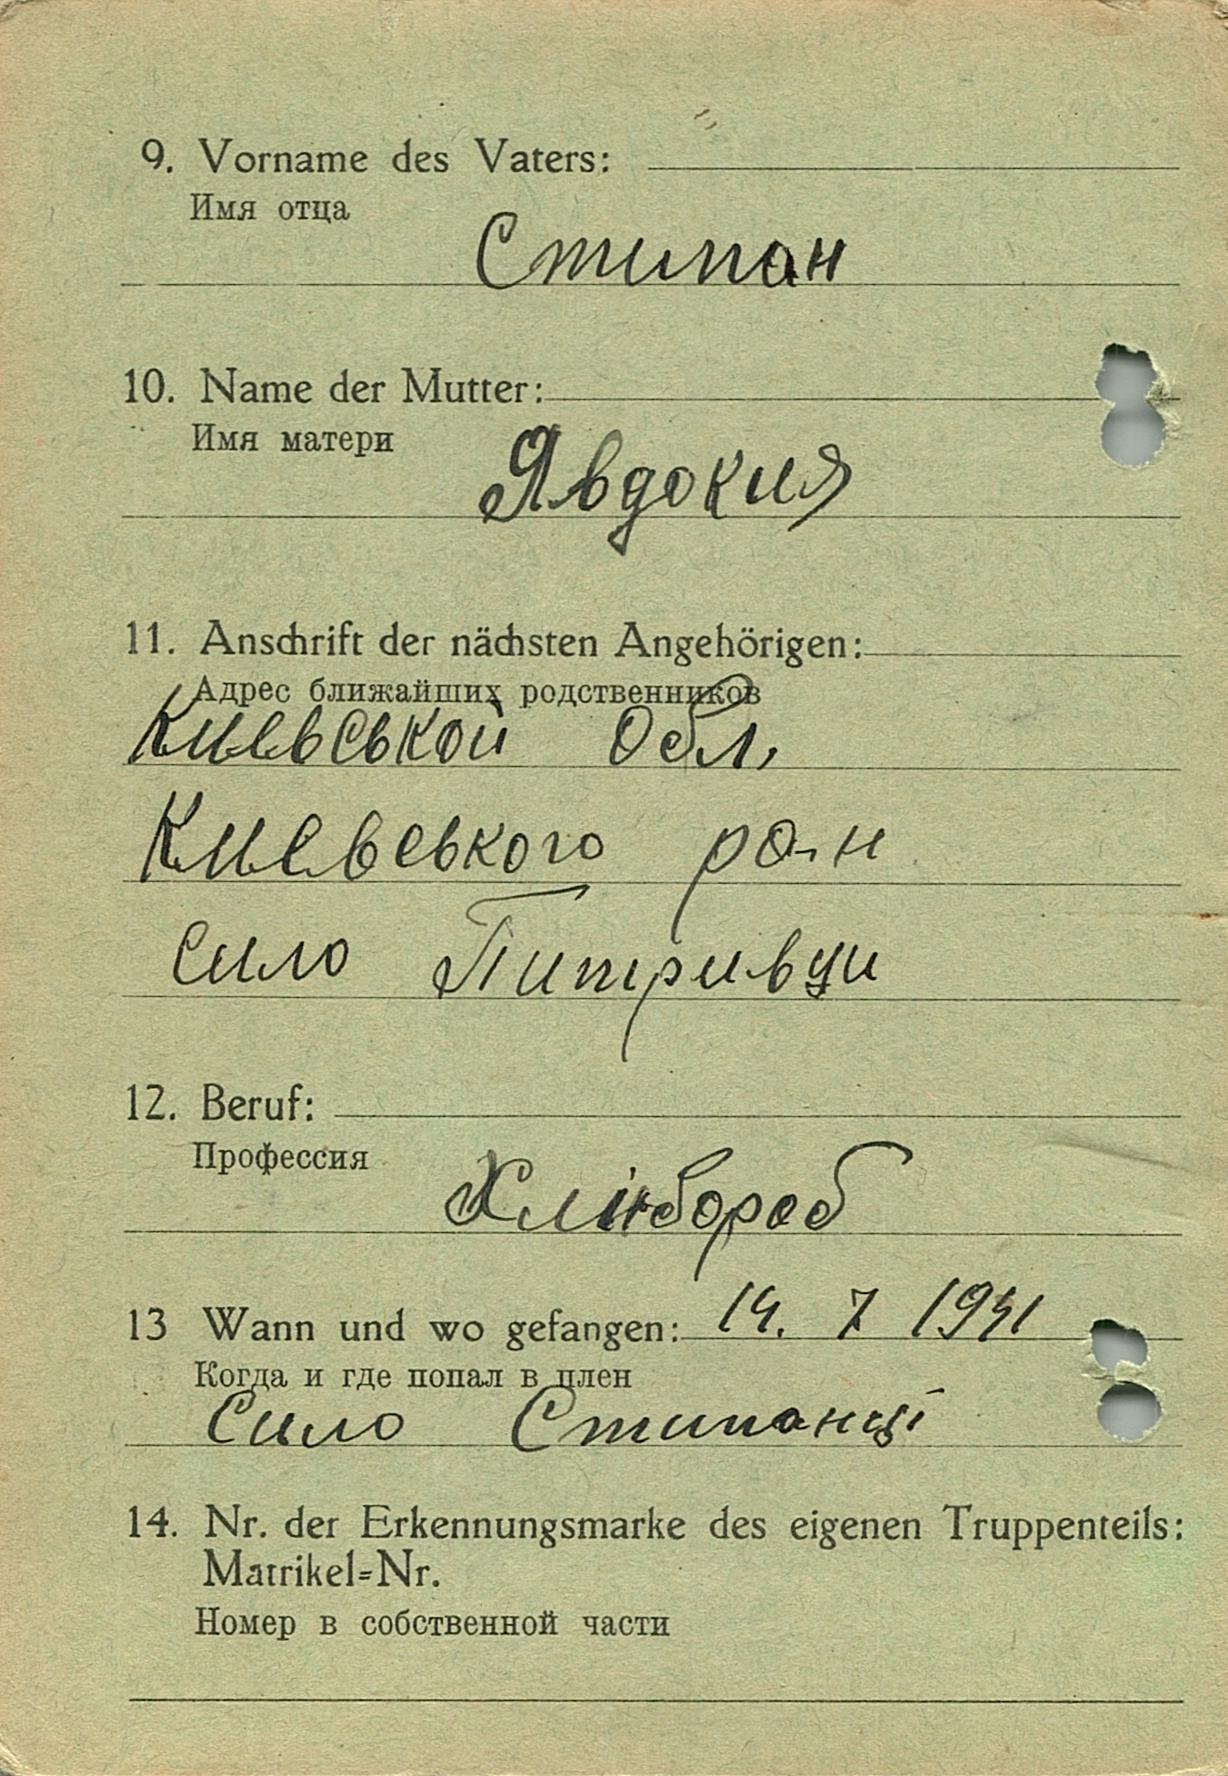 9. Vorname des Vaters:
Имя отца
Стипан
10. Name der Mutter:
Имя матери
Явдокия
11. Anschrift der nächsten Angehörigen:
Адрес ближайших родственников
Киевськой Обл,
Киевського ра-н
Сило Питривци
12. Beruf:
Профессия
Хлінбороб
13 Wann und wo gefangen: 14. 7 1941
Когда и где попал в плен
Сило Стипанці
14. Nr. der Erkennungsmarke des eigenen Truppenteils:
Matrikel=Nr.
Номер в собственной части